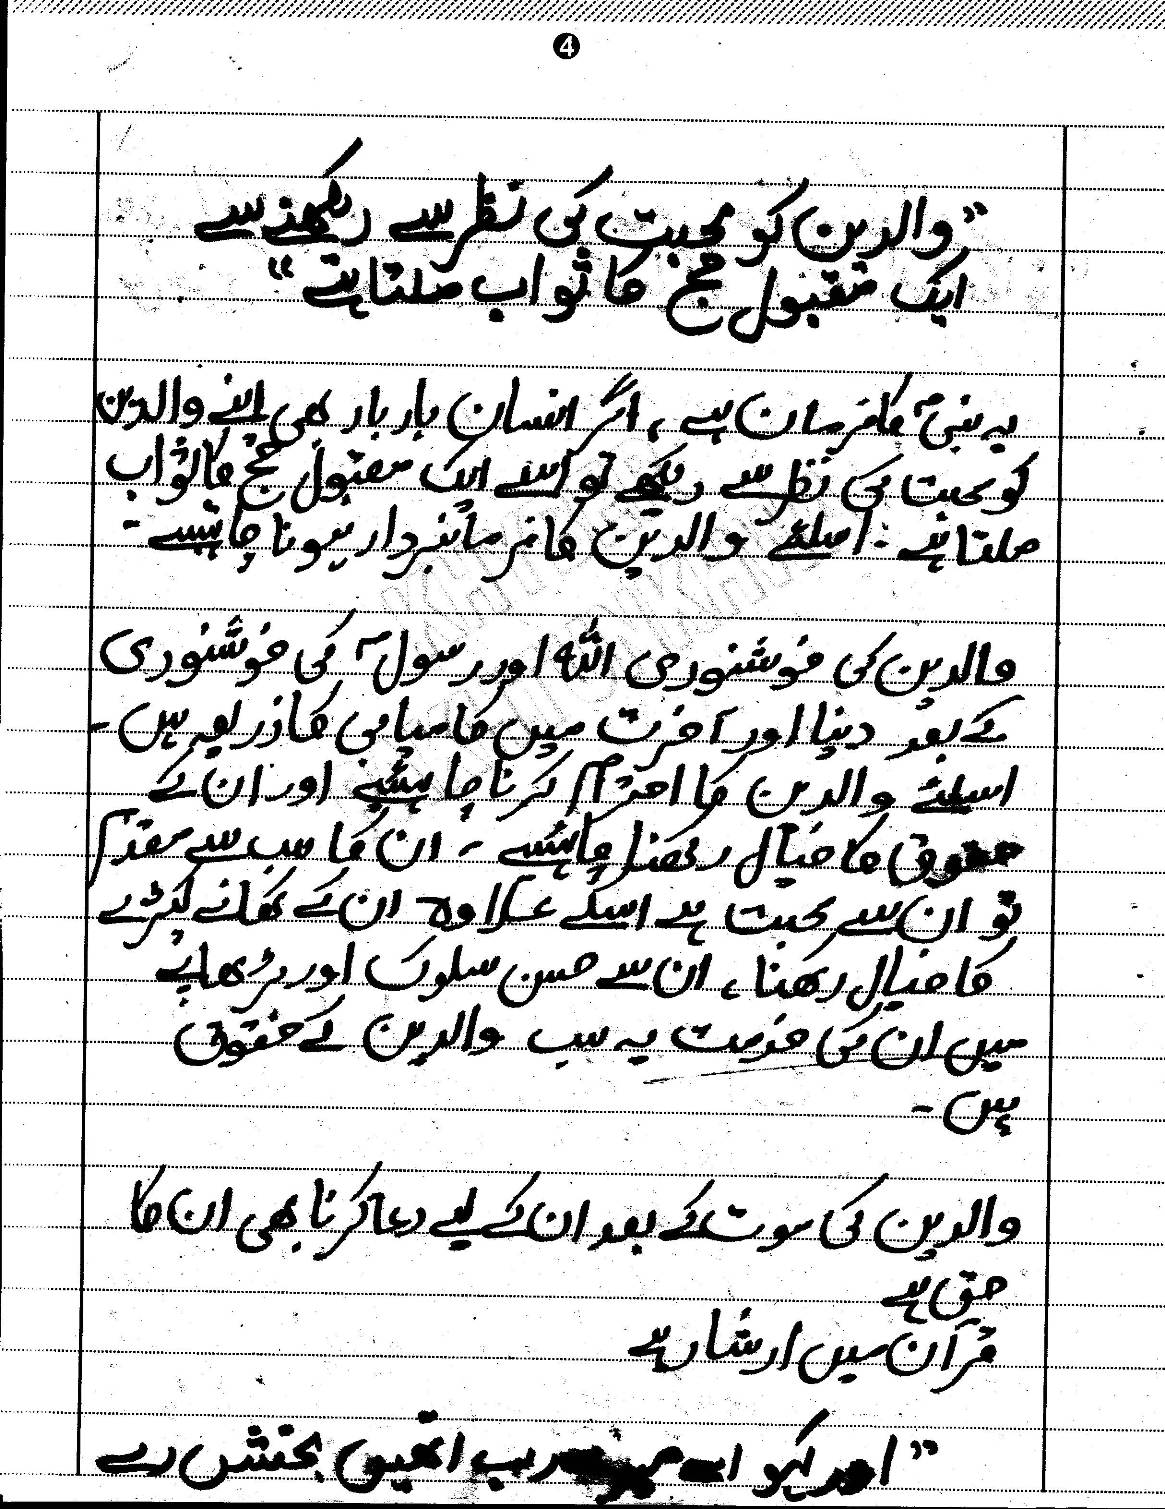 4
"والدین کو محبت کی نظر سے دیکھنے سے
ایک مقبول حج کا ثواب ملتا ہے"
یہ نبیؐ کا فرمان ہے، اگر انسان بار بار بھی اپنے والدین
کو محبت کی نظر سے دیکھے تو اسے ایک مقبول حج کا ثواب
ملتا ہے۔ اسلئے والدین کا فرمانبردار ہونا چاہیئے۔
والدین کی خوشنودی اللہ اور رسولؐ کی خوشنودی
کے بعد دنیا اور آخرت میں کامیابی کا ذریعہ ہیں۔
اسلئے والدین کا احترام کرنا چاہیئے اور ان کے
حقوق کا خیال رکھنا چاہئیے۔ ان کا سب سے مقدم
تو ان سے محبت ہے اسکے علاوہ ان کے کھانے کپڑے
کا خیال رکھنا، ان سے حسن سلوک اور بڑھاپے
میں ان کی خدمت یہ سب والدین کے حقوق
ہیں۔
والدین کی موت کے بعد ان کے لیے دعا کرنا بھی ان کا
حق ہے
قرآن میں ارشاد ہے
"اور کہو اے میرے رب انھیں بخشش دے